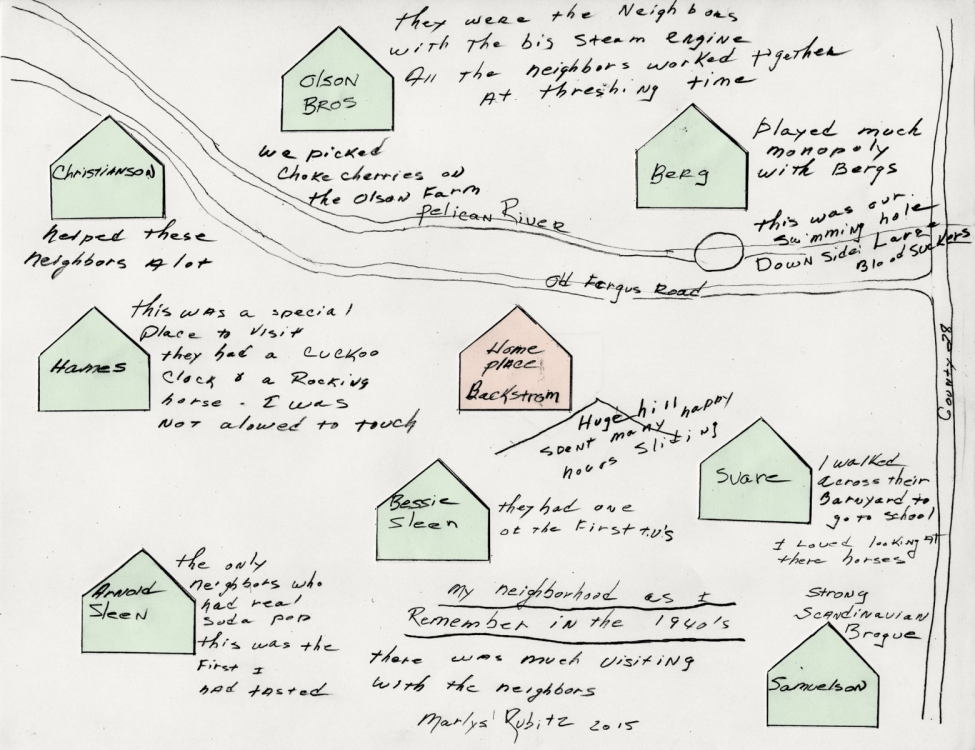 they were the Neighbors
with the big Steam engine
All the neighbors worked together
At threshing time
OlSON
BROS
Christianson
we picked
Choke cherries on
the Olson Farm
Berg
played much
monopoly
with Bergs
Pelican River
this was our
Swimming hole
Down Side: Large
Blood Suckers
helped these
neighbors A lot
Old Fergus Road
County 28
this was a special
Place to Visit
they had a cuckoo
Clock & a Rocking
horse - I was
Not alowed to touch
Hames
Home
place
Backstrom
Huge hill
spent many happy
hours Sliding
Svare
I walked
across their
Barnyard to
go to school
I Loved looking At
there horses
Bessie
Sleen
they had one
of the First t.v's
Arnold
Sleen
the only
neighbors who
had real
Soda pop
this was the
First I
had tasted
my neighborhood as I
Remember in the 1940's
there was much visiting
with the neighbors
Marlys Rubitz 2015
Strong
Scandinavian
Brogue
Samuelson